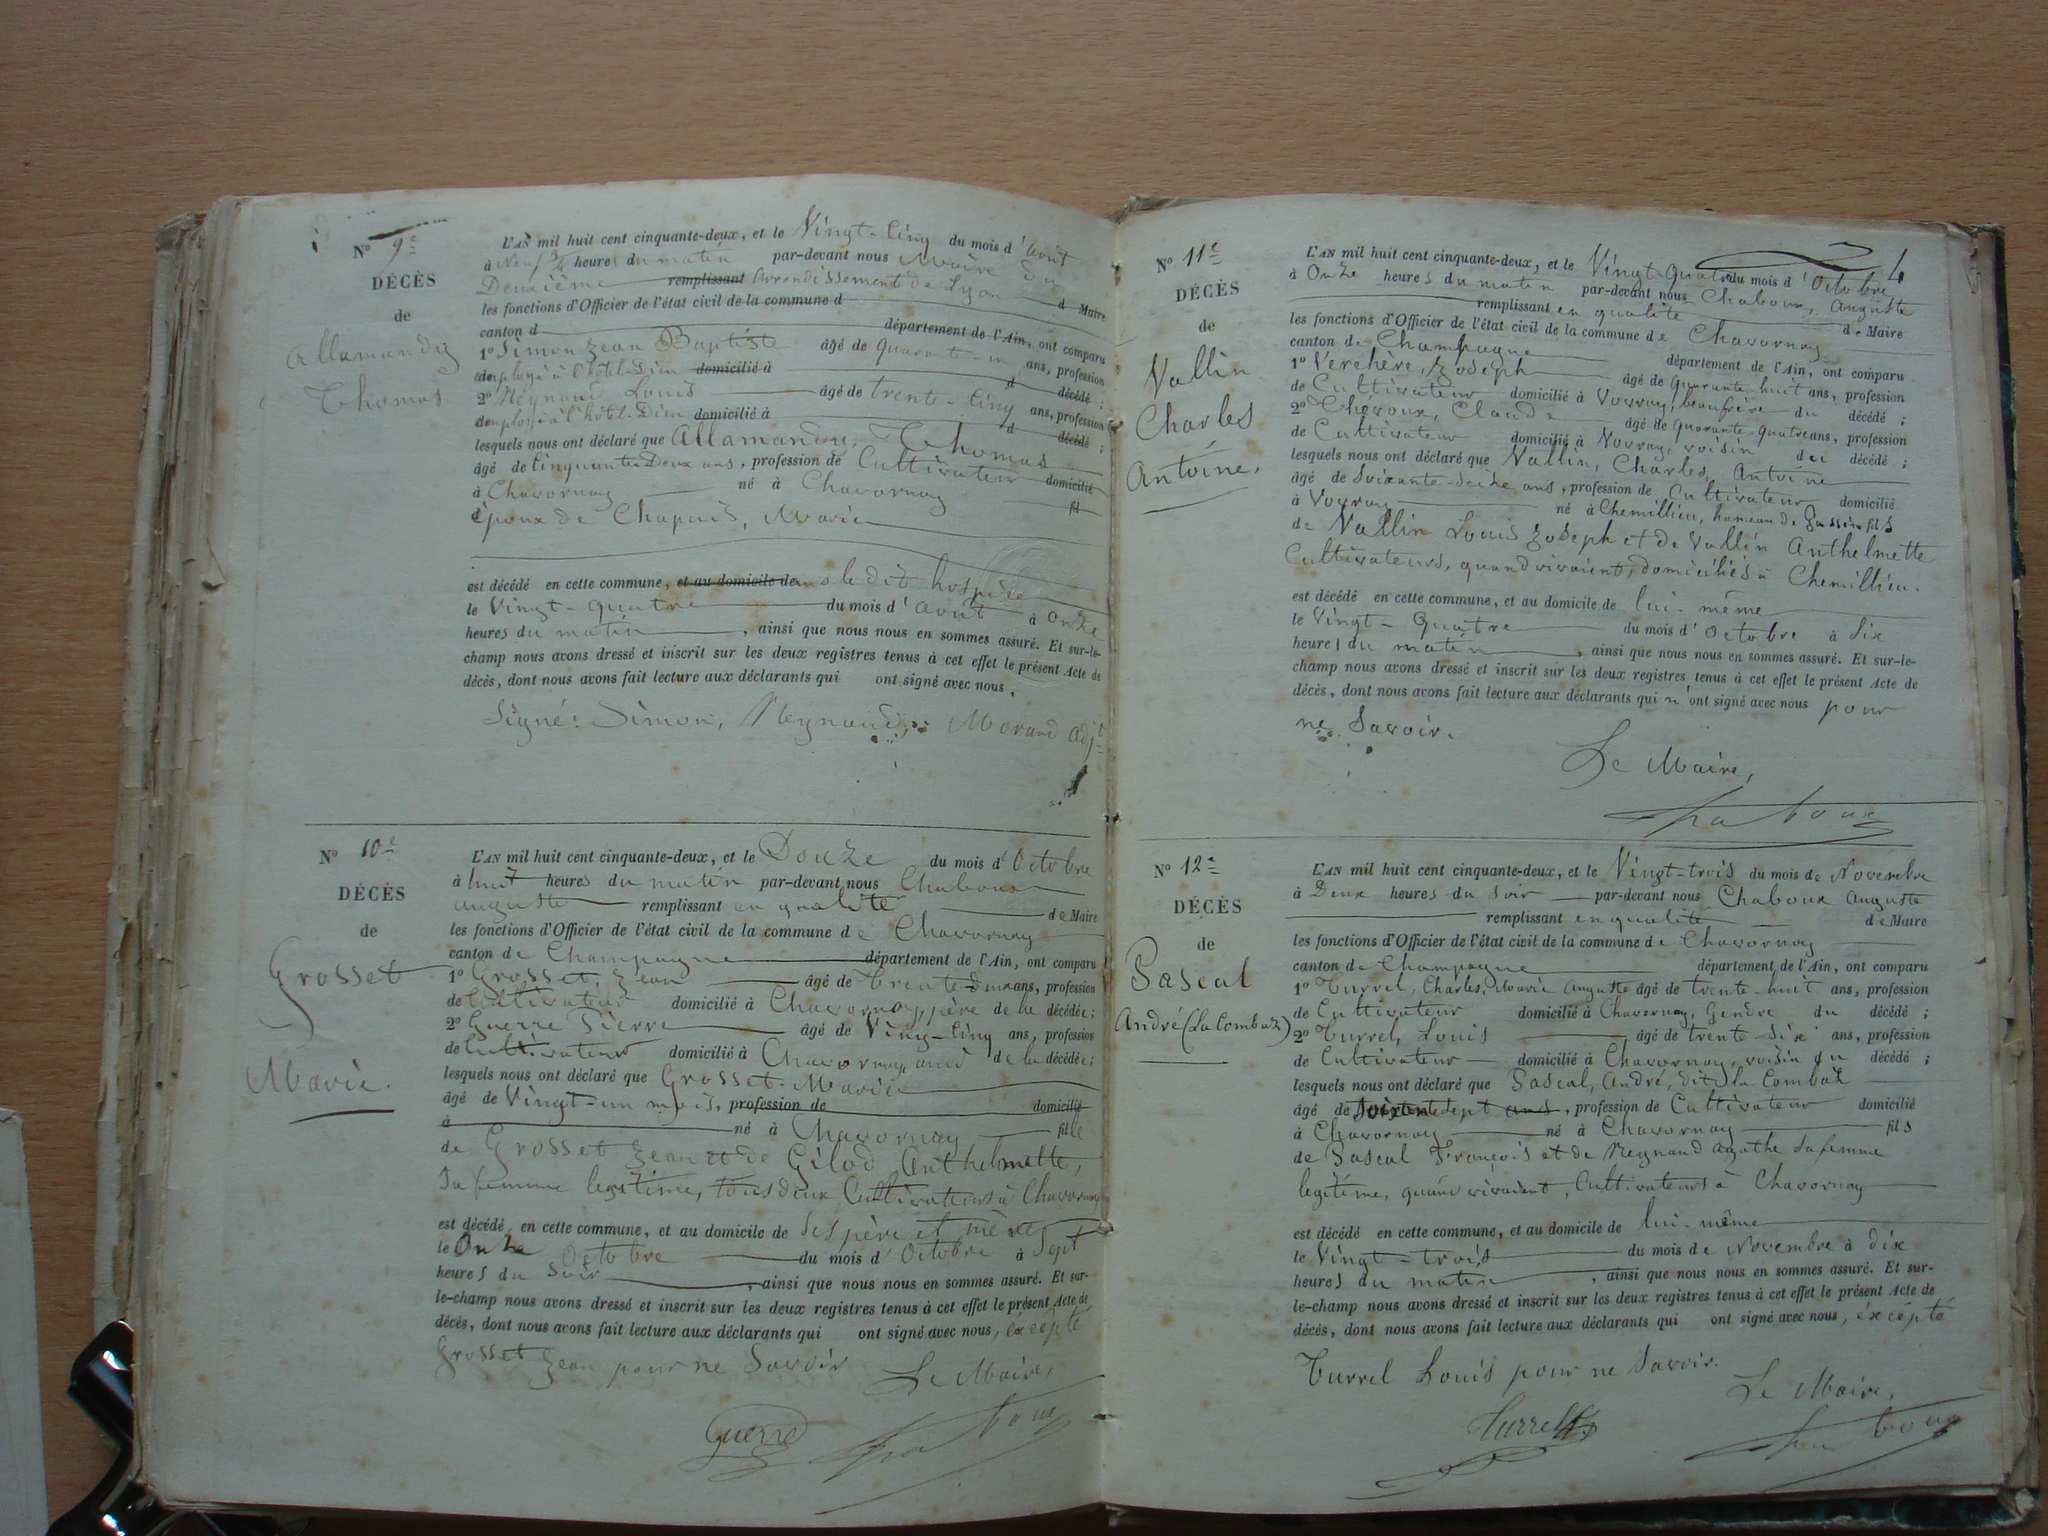 No 9e
DÉCÈS
de
Allamandy
Thomas
L'AN mil huit cent cinquante-deux, et le Vingt-Cinq du mois d'août
à Neuf 3/4 heures du matin par-devant nous Maire du
Deuxième remplissant Arrondissement de Lyon d Maire
les fonctions d'Officier de l'état civil de la commune d
canton d département de l'Ain, ont comparu
1° Simon Jean Baptiste âgé de Quarante-un ans, profession
d'employé à l'hôtel-Dieu domicilié à d décédé ;
2° Neynaud Louis âgé de trente-cinq ans, profession
d'employé à l'hôtel-Dieu domicilié à d décédé ;
lesquels nous ont déclaré que Allamandy, Thomas
âgé de Cinquante Deux ans, profession de Cultivateur domicilié
à Chavornay né à Chavornay fil
époux de Chapuis, Marie
est décédé en cette commune, et au domicile de dans le dit hospice
le Vingt-quatre du mois d'août à onze
heures du matin, ainsi que nous nous en sommes assuré. Et sur-le-
champ nous avons dressé et inscrit sur les deux registres tenus à cet effet le présent Acte de
décès, dont nous avons fait lecture aux déclarants qui ont signé avec nous.
Signé: Simon, Neynaud, Morand adjt
No 10e
DÉCÈS
de
Grosset
Marie.
L'AN mil huit cent cinquante-deux, et le Douze du mois d'Octobre
à huit heures du matin par-devant nous Chaboux
Auguste remplissant en qualité de Maire
les fonctions d'Officier de l'état civil de la commune de Chavornay
canton de Champagne département de l'Ain, ont comparu
1° Grosset, Jean âgé de Trente-Deux ans, profession
de Cultivateur domicilié à Chavornay, père de la décédée ;
2° Guerre Pierre âgé de Vingt-Cinq ans, profession
de Cultivateur domicilié à Chavornay ami de la décédée ;
lesquels nous ont déclaré que Grosset-Marie
âgé de Vingt-un mois, profession de domicilié
à né à Chavornay fille
de Grosset Jean et de Gilod Anthelmette,
Sa femme légitime, tous deux Cultivateurs à Chavornay
est décédé en cette commune, et au domicile de Ses père et mère
le Onze Octobre du mois d'Octobre à Sept
heures du Soir, ainsi que nous nous en sommes assuré. Et sur-
le-champ nous avons dressé et inscrit sur les deux registres tenus à cet effet le présent Acte de
décès, dont nous avons fait lecture aux déclarants qui ont signé avec nous, excepté
Grosset Jean pour ne Savoir Le Maire,
Guerre Chaboux
4
No 11e
DÉCÈS
de
Vallin
Charles
Antoine.
L'AN mil huit cent cinquante-deux, et le Vingt-Quatre du mois d'Octobre
à Onze heures du matin par-devant nous Chaboux, Auguste
remplissant en qualité de Maire
les fonctions d'Officier de l'état civil de la commune de Chavornay
canton de Champagne département de l'Ain, ont comparu
1° Verchère, Joseph âgé de Quarante-huit ans, profession
de Cultivateur domicilié à Vovray, beaufrère du décédé ;
2° Théroux, Claude âgé de Quarante Quatre ans, profession
de Cultivateur domicilié à Vovray, voisin du décédé ;
lesquels nous ont déclaré que Vallin, Charles, Antoine
âgé de Soixante-Seize ans, profession de Cultivateur domicilié
à Vovray né à Chemillieu, hameau de fils
de Vallin Louis Joseph et de Vallin Anthelmette
Cultivateurs, quand vivaient, domiciliés à Chemillieu.
est décédé en cette commune, et au domicile de lui-même
le Vingt-Quatre du mois d'Octobre à Six
heures du matin, ainsi que nous nous en sommes assuré. Et sur-le-
champ nous avons dressé et inscrit sur les deux registres tenus à cet effet le présent Acte de
décès, dont nous avons fait lecture aux déclarants qui n'ont signé avec nous pour
ne Savoir.
Le Maire,
Chaboux
No 12e
DÉCÈS
de
Pascal
André (La Combaz)
L'AN mil huit cent cinquante-deux, et le Vingt-trois du mois de Novembre
à Deux heures du Soir par-devant nous Chaboux Auguste
remplissant en qualité de Maire
les fonctions d'Officier de l'état civil de la commune de Chavornay
canton de Champagne département de l'Ain, ont comparu
1° Turrel, Charles, Marie Auguste âgé de trente-huit ans, profession
de Cultivateur domicilié à Chavornay, Gendre du décédé ;
2° Turrel, Louis âgé de trente-Six ans, profession
de Cultivateur domicilié à Chavornay, voisin du décédé ;
lesquels nous ont déclaré que Pascal, André, dit la Combaz
âgé de Soixante sept ans, profession de Cultivateur domicilié
à Chavornay né à Chavornay fils
de Pascal François et de Neynaud Agathe Sa femme
légitime, quand vivaient, Cultivateurs à Chavornay
est décédé en cette commune, et au domicile de lui-même
le Vingt-trois du mois de Novembre à dix
heures du matin, ainsi que nous nous en sommes assuré. Et sur-
le-champ nous avons dressé et inscrit sur les deux registres tenus à cet effet le présent Acte de
décès, dont nous avons fait lecture aux déclarants qui ont signé avec nous, excepté
Turrel Louis pour ne Savoir.
Le Maire,
Turrel Chaboux